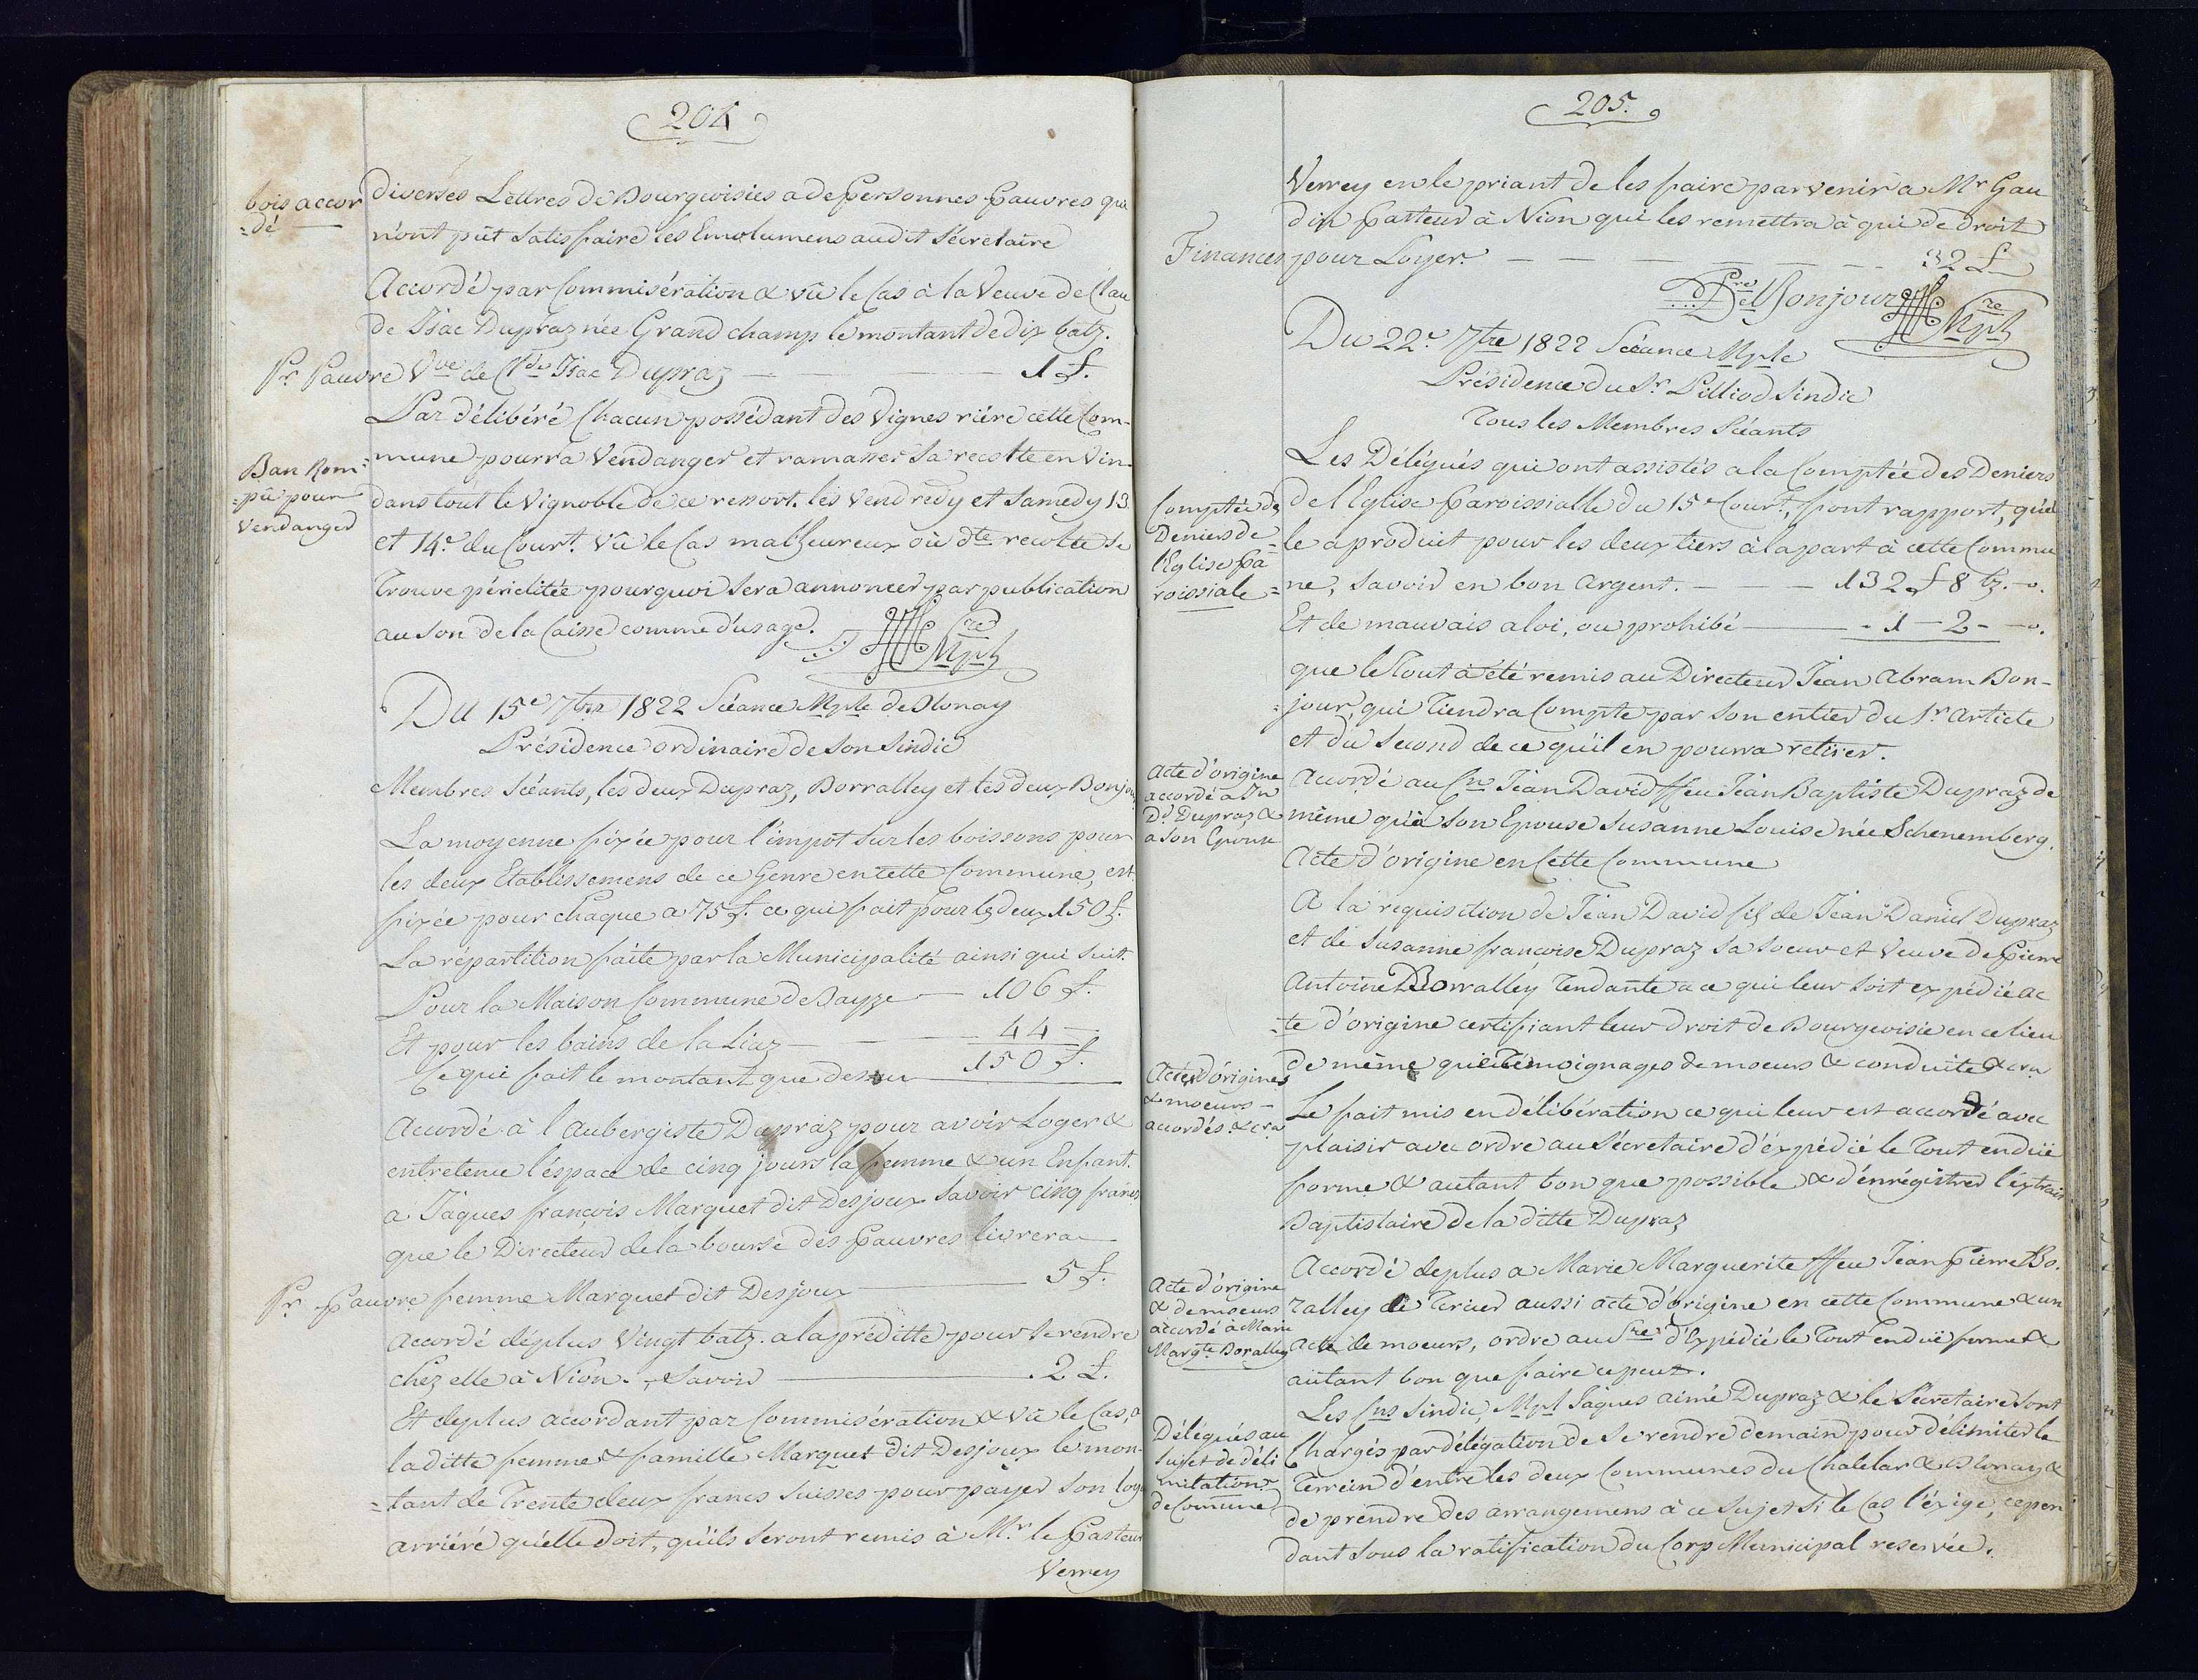 204
bois accor
=dé
diverses Lettres de Bourgeoisies a de personnes pauvres qui
n'ont pût Satisfaire les Emolumens audit Sécretaire
Accordé par Commisération & vû le Cas à la Veuve de Clau
de Isac Dupraz née Grand champ le montant de dix batz.
Pr. Pauvre Vve de Cde Isac Dupraz 1 f.
Par délibéré Chacun possédant des Vignes riére cette Com-
Ban Rom=
=pû pour
Vendanger
mune pourra Vendanger et ramasser Sa recolte en Vin
dans tout le Vignoble de ce ressort. les Vendredy et Samedy 13.
et 14e. du Court. Vû le Cas malheureux où dte recolte Se
Trouve périclitée pourquoi Sera annoncer par publication
au Son de la Caisse comme d'usage.
Cre
Mpl
Du 15e 7bre 1822 Séance Mple de Blonay
Présidence ordinaire de Son Sindic
Membres Séants, les deux Dupraz, Borralley et les deux Bonjour
La moyenne fixée pour l'impot Sur les boissons pour
les deux Etablissemens de ce Genre en cette Commune, est
fixée pour chaque a 75 f. ce qui fait pour les deux 150 f.
La répartition faite par la Municipalité ainsi qui Suit.
Pour la Maison Commune de Bayze 106 f.
Et pour les bains de la Liaz 44
Ce qui fait le montant que dessus 150 f.
Accordé à l'Aubergiste Dupraz pour avoir Loger &
entretenu l'éspace de cinq jours la femme & un Enfant.
a Jaques françois Marquet dit Desjoux Savoir cinq francs
que le Directeur de la bourse des pauvres livrera
Pr. pauvre femme Marquet dit Desjoux 5 f.
Accordé déplus Vingt batz. a la préditte pour Se rendre
chez elle à Nion. Savoir 2 f.
Et deplus accordant par Commisération & vû le Cas, a
la ditte femme & famille Marquet dit Desjoux le mon-
=tant de Trente deux francs Suisses pour payer Son loyer
arriéré qu'elle doit, qu'ils Seront remis à Mr. le Pasteur
Verrey
205.
Verrey en le priant de les faire parvenir a Mr Gau
din pasteur à Nion qui les remettra à qui de droit
Finances pour Loyer. 32 f.
Bonjour
Cre
Mpl
Du 22e 7bre 1822 Séance Mple
Présidence du Sr Pilliod Sindic
Tous les Membres Séants
Les Délégués qui ont assistés a la Comptée des Deniers
Comptée des
Deniers de
l'Eglise pa
roissiale
de l'Eglise paroissialle du 15e Court, font rapport, qu'el
le a produit pour les deux tiers à la part à cette Commu
=ne, Savoir en bon Argent. 132 f 8 bz. o.
Et de mauvais aloi, ou prohibé 1 - 2 - o.
que le Tout à été remis au Directeur Jean Abram Bon-
=jour, qui Tiendra Compte par Son entier du 1r Article
et du Second de ce qu'il en pourra retirer.
Acte d'origine
accordé a Jn
Dd Dupraz &
a Son Epouse
Accordé au Cn Jean David ffeu Jean Baptiste Dupraz de
même qu'à Son Epouse Susanne Louise née Schenemberg.
Acte d'origine en Cette Commune
A la requisition de Jean David fil de Jean Daniel Dupraz
et de Susanne françoise Dupraz Sa Soeur et Veuve de Pierre
Antoine Borralley Tendante a ce qui leur Soit expédié Ac
=te d'origine certifiant leur droit de Bourgeoisie en ce lieu
Actes d'origines
& moeurs
accordés. & cra
de même que Témoignages de moeurs & conduite & cra
Le fait mis en délibération ce qui leur est accordé avec
plaisir avec ordre au Sécretaire d'éxpédié le Tout en duë
forme & autant bon que possible & d'énrégistrer l'éxtrait
Baptistaire de la ditte Dupraz
Acte d'origine
& de moeurs
accordé à Marie
Margte. Boralley
Accordé deplus a Marie Marguerite ffeu Jean Pierre Bo.
ralley de Tercier aussi acte d'origine en cette Commune & un
Acte de moeurs, ordre au Sre d'Expédié le Tout en duë forme &
autant bon que faire ce peut.
Délégués au
Sujet de déli
mitation
de Comune
Les Cns Sindic, Mpl Jaques aimé Dupraz & le Sécretaire Sont
Chargés par délégation de Se rendre demain pour délimiter le
Terrein d'entre les deux Communes du Chatelar & Blonay &
de prendre des arrangemens à ce Sujet Si le Cas l'éxige, cepen
dant Sous la ratification du Corp Municipal reservée.